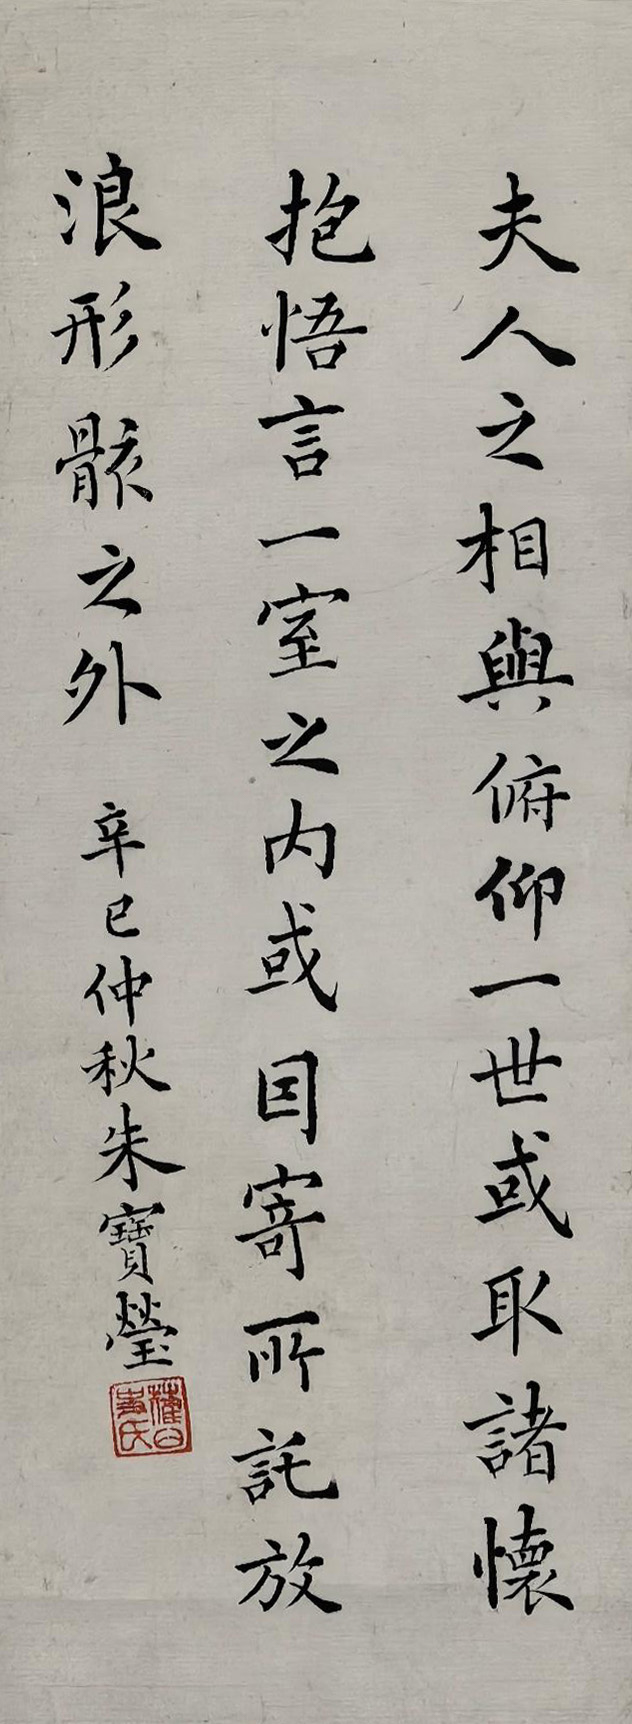 夫人之相與俯仰一世或取諸懷
抱悟言一室之内或因寄所託放
浪形骸之外
辛巳仲秋朱寶瑩